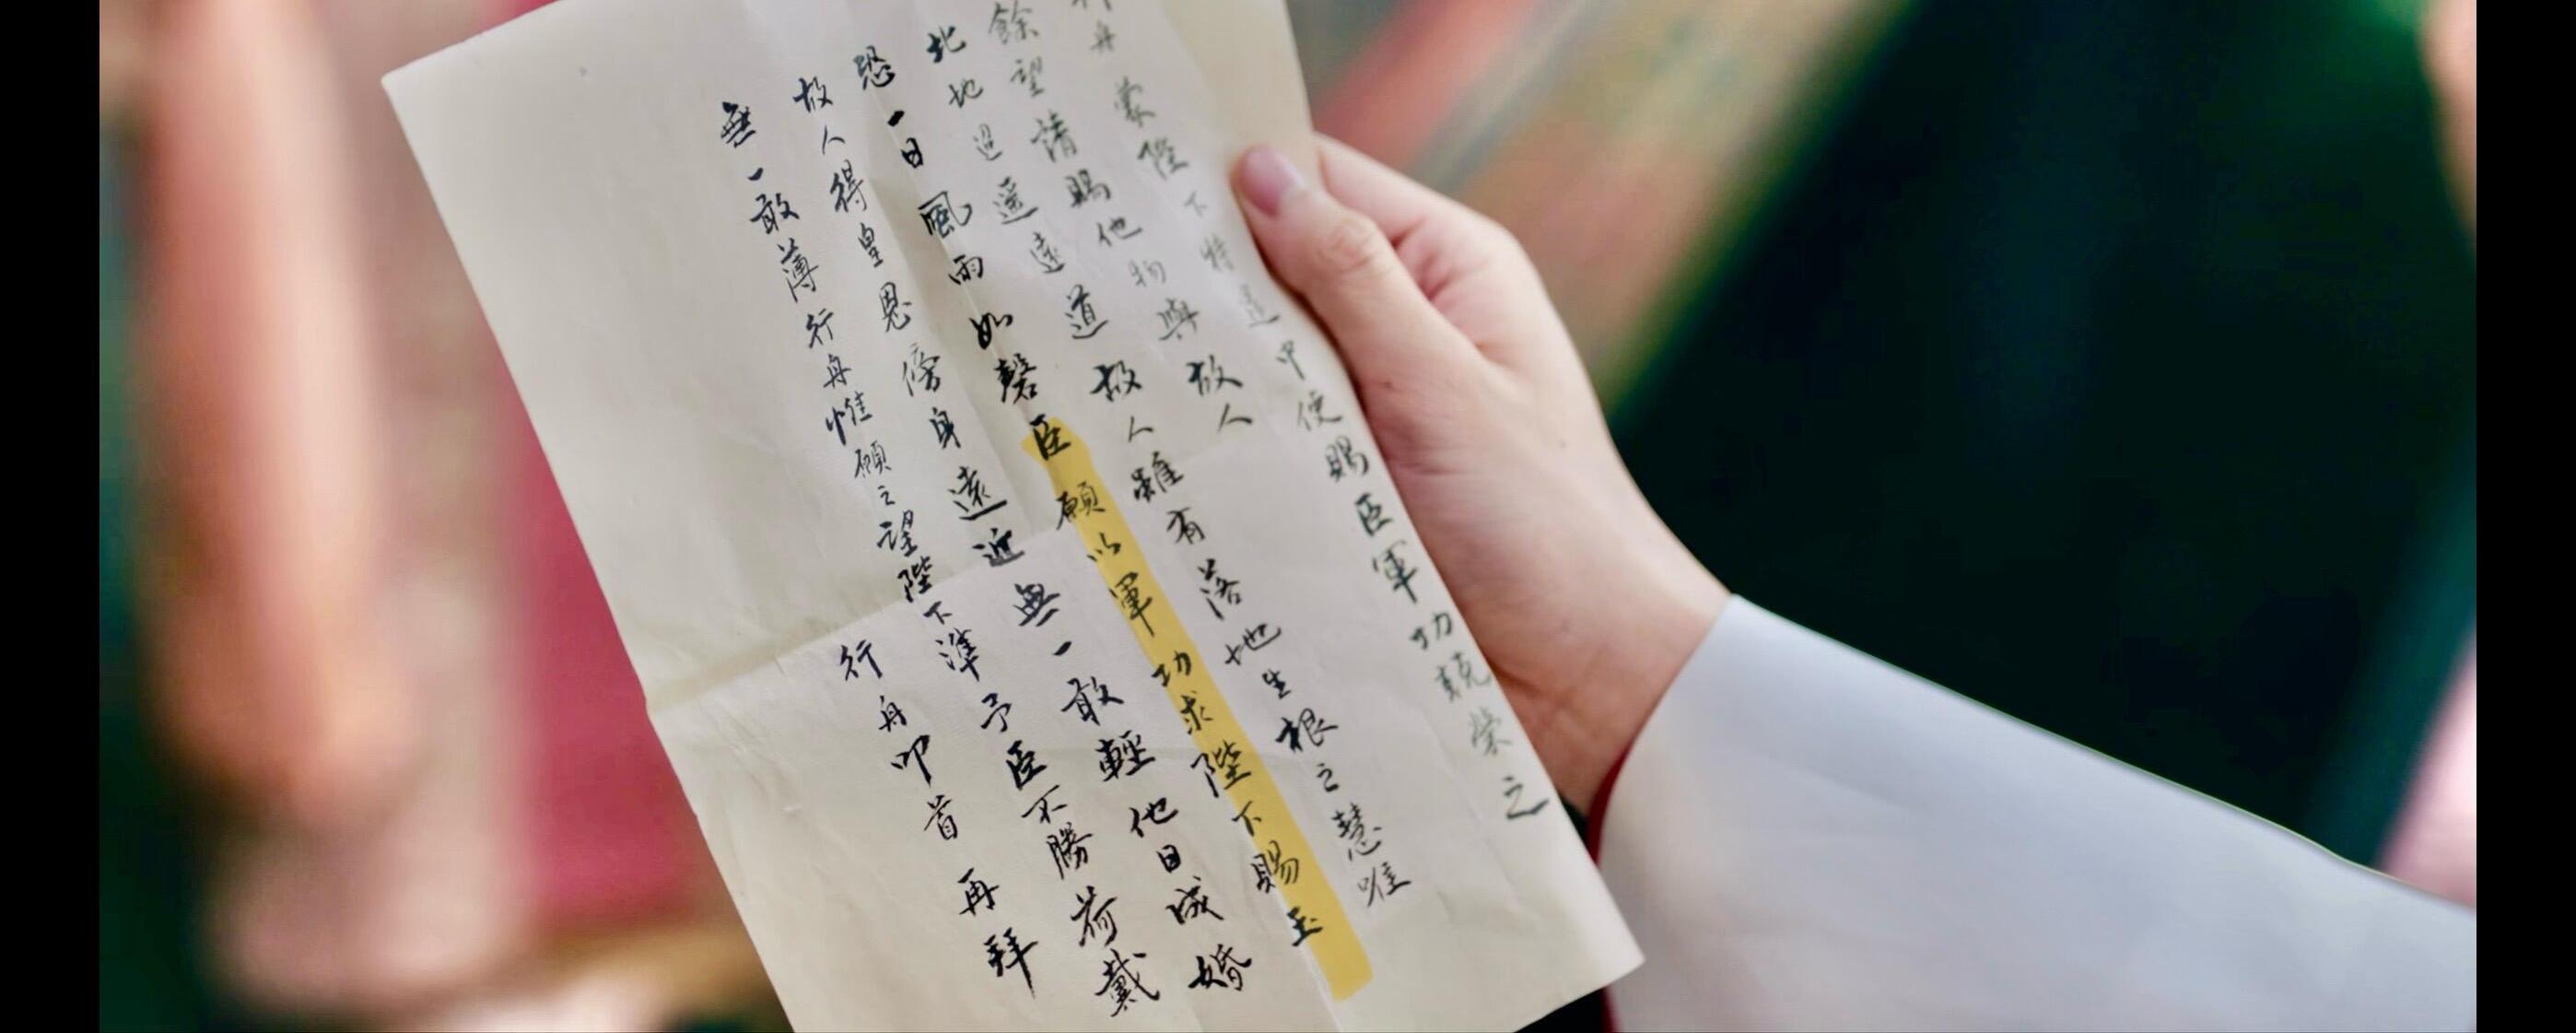 行舟蒙陛下特遣中使賜臣軍功兢榮之
餘望請賜他物與故人
北地迢遥遠道故人雖有落地生根之慧唯
恐一日風雨如磬臣願以軍功求陛下賜玉
故人得皇恩傍身遠近無一敢輕他日成婚
無一敢薄行舟惟願之望陛下準予臣不勝荷戴
行舟叩首再拜